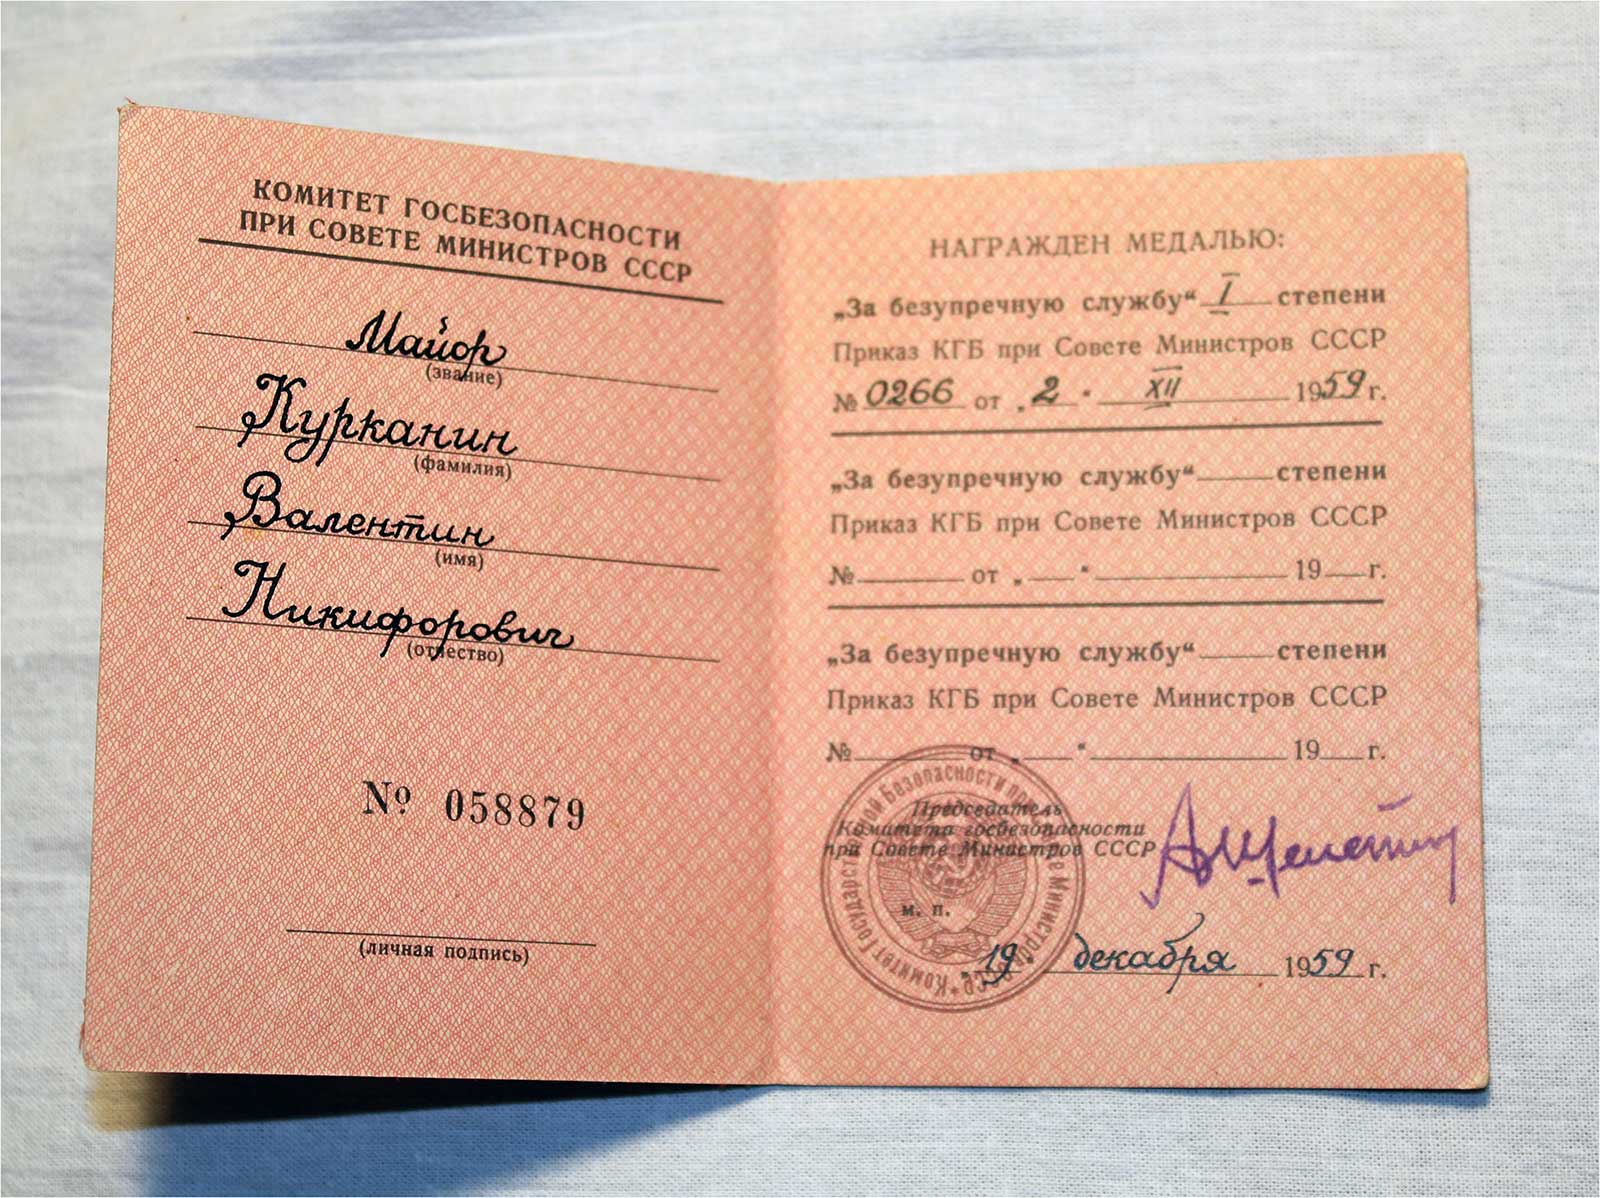 КОМИТЕТ ГОСБЕЗОПАСНОСТИ
ПРИ СОВЕТЕ МИНИСТРОВ СССР
Майор
(звание)
Курканин
(фамилия)
Валентин
(имя)
Никифорович
(отчество)
№ 058879
(личная подпись)
НАГРАЖДЕН МЕДАЛЬЮ:
„За безупречную службу“ I степени
Приказ КГБ при Совете Министров СССР
№ 0266 от „2“ XII 1959 г.
„За безупречную службу“ степени
Приказ КГБ при Совете Министров СССР
№ от „ “ 19 г.
„За безупречную службу“ степени
Приказ КГБ при Совете Министров СССР
№ от „ “ 19 г.
Председатель
Комитета госбезопасности
при Совете Министров СССР
А Шелепин
м. п.
„19“ декабря 1959 г.
Комитет Государственной Безопасности при Совете Министров СССР